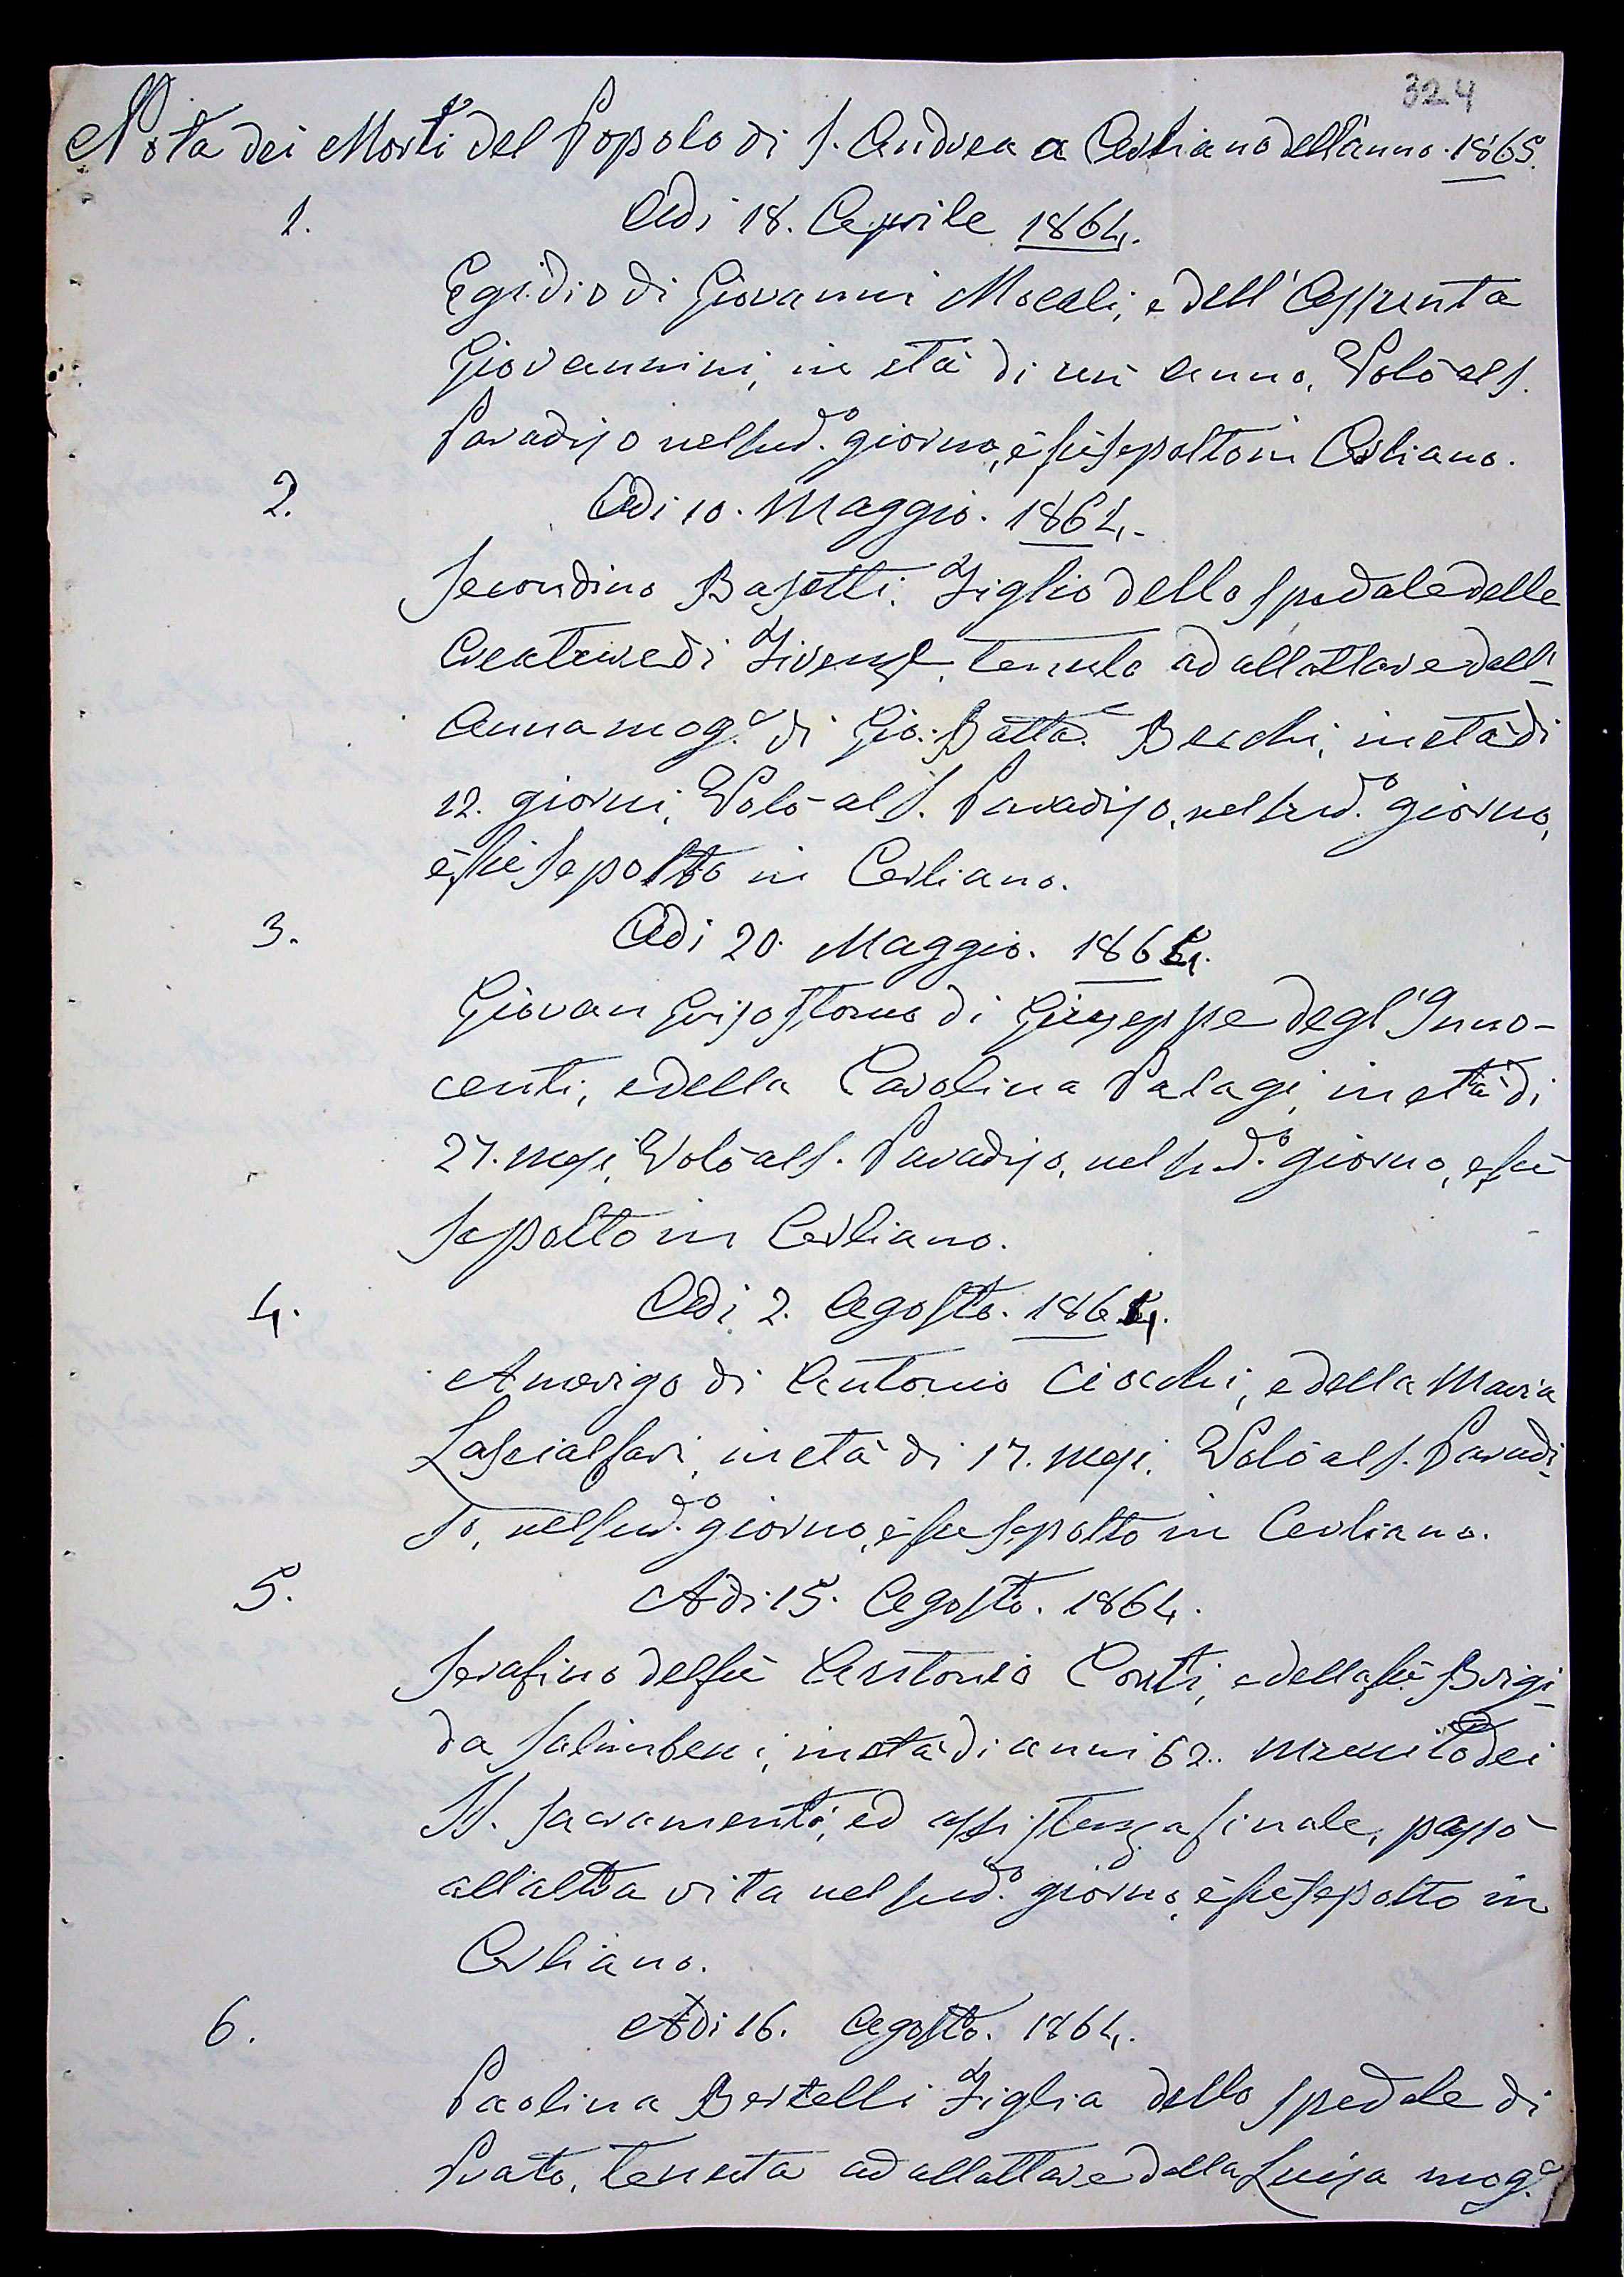 324
Nota dei Morti del Popolo di S. Andrea a Cerliano dell'anno. 1865.
1. Adi 18. Aprile 1864.
Egidio di Giovanni Mocali, e dell' Assunta
Giovannini, in età di un' anno, Volò al S.
Paradiso nel sud.º giorno, è fù sepolto in Cerliano.
2. Adi 10. Maggio. 1864.
Secondino Basetti. Figlio dello spedale delle
Creature di Firenze, tenuto ad allattare dell'
Anna mog.e di Gio: Batta. Becchi, in età di
12. giorni, Volò al S. Paradiso, nel sud.º giorno,
è fù sepolto in Cerliano.
3. Adi 20. Maggio. 1864.
Giovan Grisostomo di Giuseppe degl'Inno-
centi, e della Carolina Palagi, in età di
27. mesi, Volò al S. Paradiso, nel sud.º giorno, e fù
sepolto in Cerliano.
4. Adi 2. Agosto. 1864.
Amerigo di Antonio Ciocchi, e della Maria
Lascialfari, in età di 17. mesi. Volò al S. Paradi-
so, nel sud.º giorno, è fù sepolto in Cerliano.
5. Adi 15. Agosto. 1864.
Serafino del fù Antonio Conti, e della fù Brigi-
da Salimbeni, in età di anni 62. munito dei
SS. Sacramenti, ed assistenza finale, passò
all'altra vita nel sud.º giorno, è fù sepolto in
Cerliano.
6. Adi 16. Agosto. 1864.
Paolina Bertelli Figlia dello spedale di
Prato, tenuta ad allattare dalla Luisa mog.e